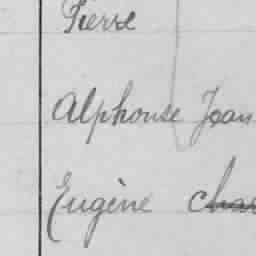 Pierre
Alphonse Jean
Eugène